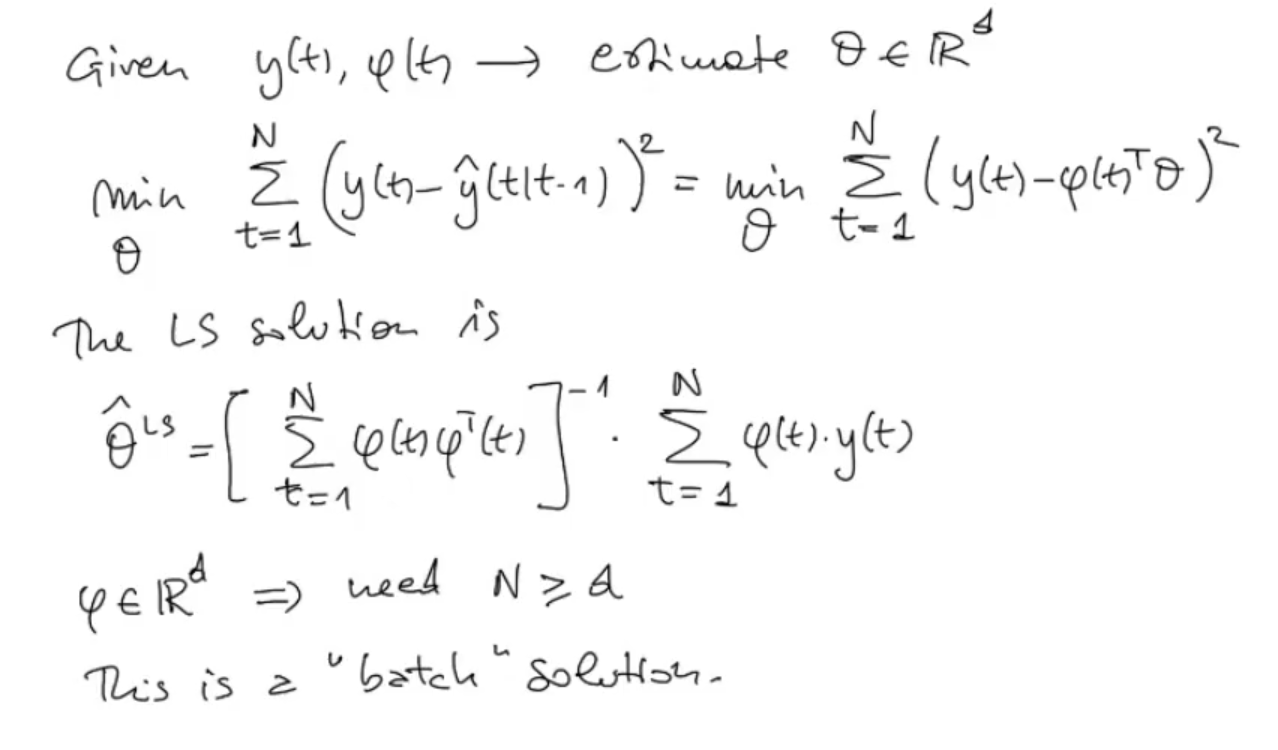 Given y(t), φ(t) → estimate θ ∈ ℝᵈ
min_θ ∑_{t=1}^{N} (y(t) - ŷ(t|t-1))² = min_θ ∑_{t=1}^{N} (y(t) - φ(t)ᵀθ)²
The LS solution is
θ̂^{LS} = [∑_{t=1}^{N} φ(t)φᵀ(t)]⁻¹ · ∑_{t=1}^{N} φ(t)·y(t)
φ ∈ ℝᵈ ⇒ need N ≥ d
This is a "batch" solution.